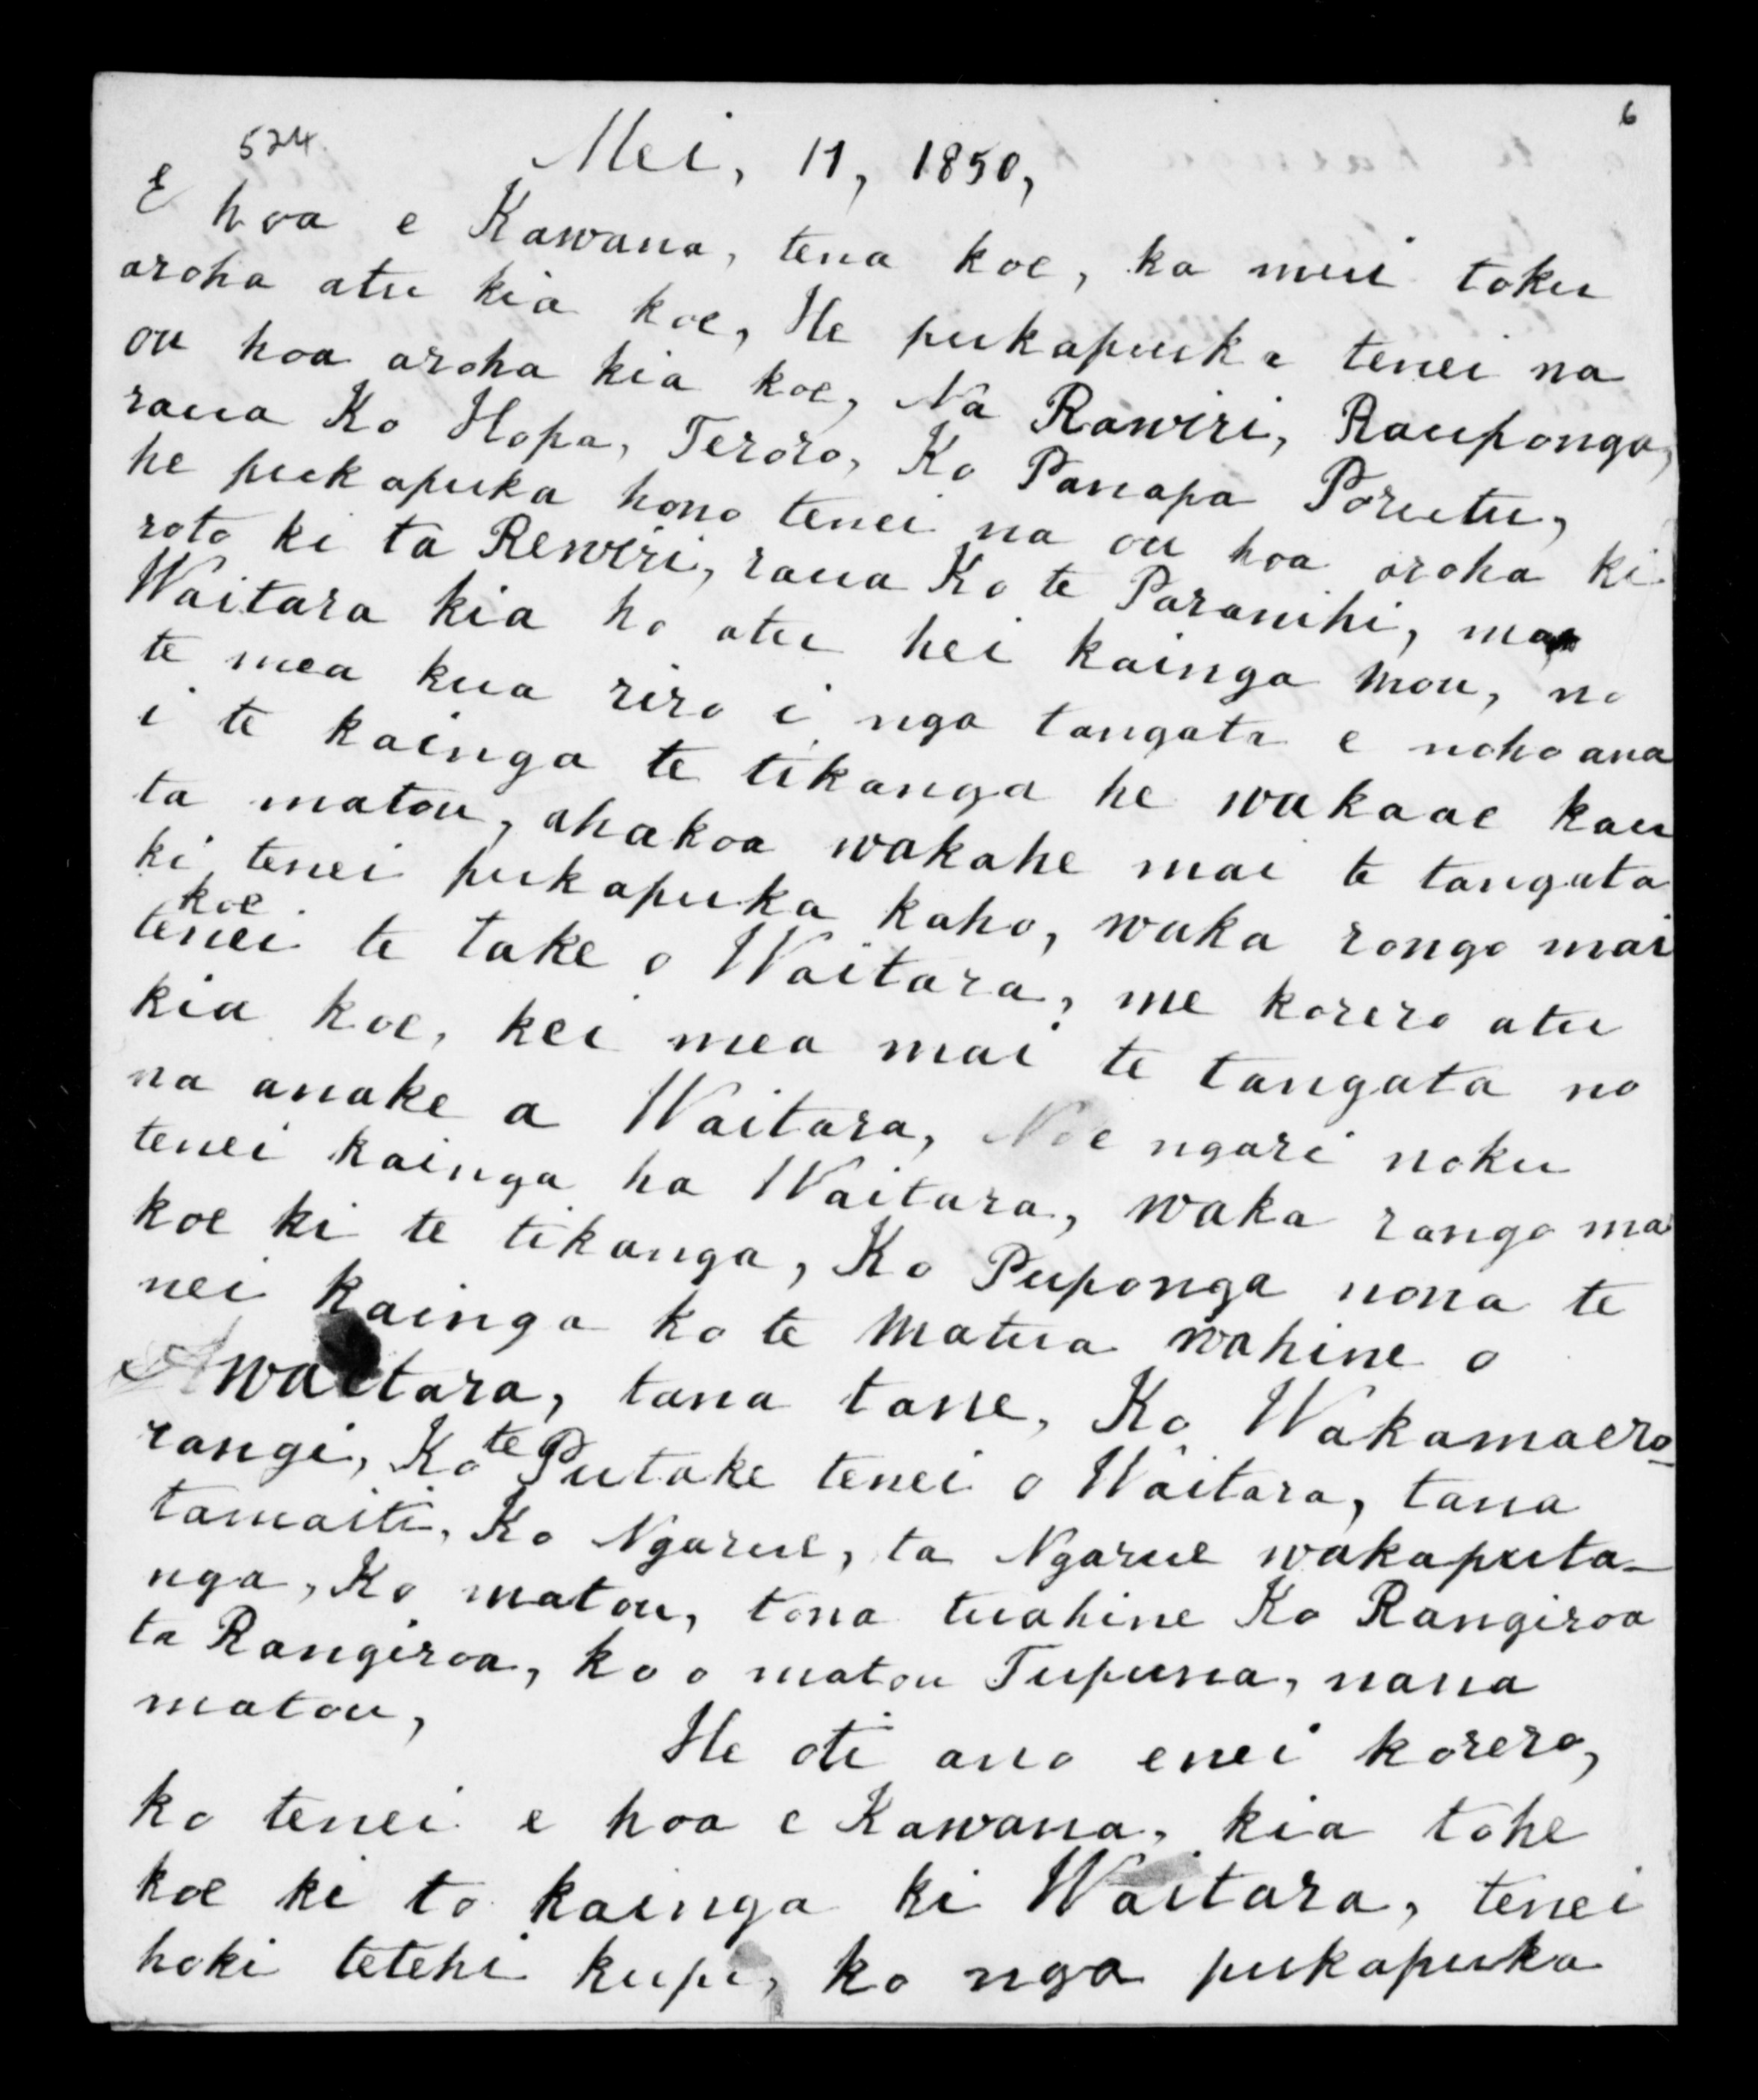 6
524.
Mei, 11, 1850,
E hoa e Kawana, tena koe, ka nui toku
aroha atu kia koe, He pukapuka tenei na
ou hoa aroha kia koe, Na Rawiri, Rauponga,
raua Ko Hopa, Teroro, Ko Panapa Porutu,
he pukapuka hono tenei na ou hoa aroha ki
roto ki ta Rewiri, raua Ko te Paranihi, mo
Waitara kia ho atu hei kainga mou, no
te mea kua riro i nga tangata e noho ana
i te kainga te tikanga he wakaae kau
ta matou, ahakoa wakahe mai te tangata
ki tenei pukapuka kaho, waka rongo mai
koe
tenei te take o Waitara, me korero atu
kia koe, kei mea mai te tangata no
na anake a Waitara, Noe ngari noku
tenei kainga ha Waitara, waka rango mai
koe ki te tikanga, Ko Puponga nona te
nei kainga ko te Matua wahine o
Awaitara, tana tane, Ko Wakamaero-
rangi, Ko te Putake tenei o Waitara, tana
tamaiti, Ko Ngarue, ta Ngarue wakaputa-
nga, Ko matou, tona tuahine Ko Rangiroa
ta Rangiroa, ko o matou Tupuna, nana
matou,
He oti ano enei korero,
ko tenei e hoa e Kawana, kia tohe
koe ki to kainga ki Waitara, tenei
hoki tetehi kupu, ko nga pukapuka